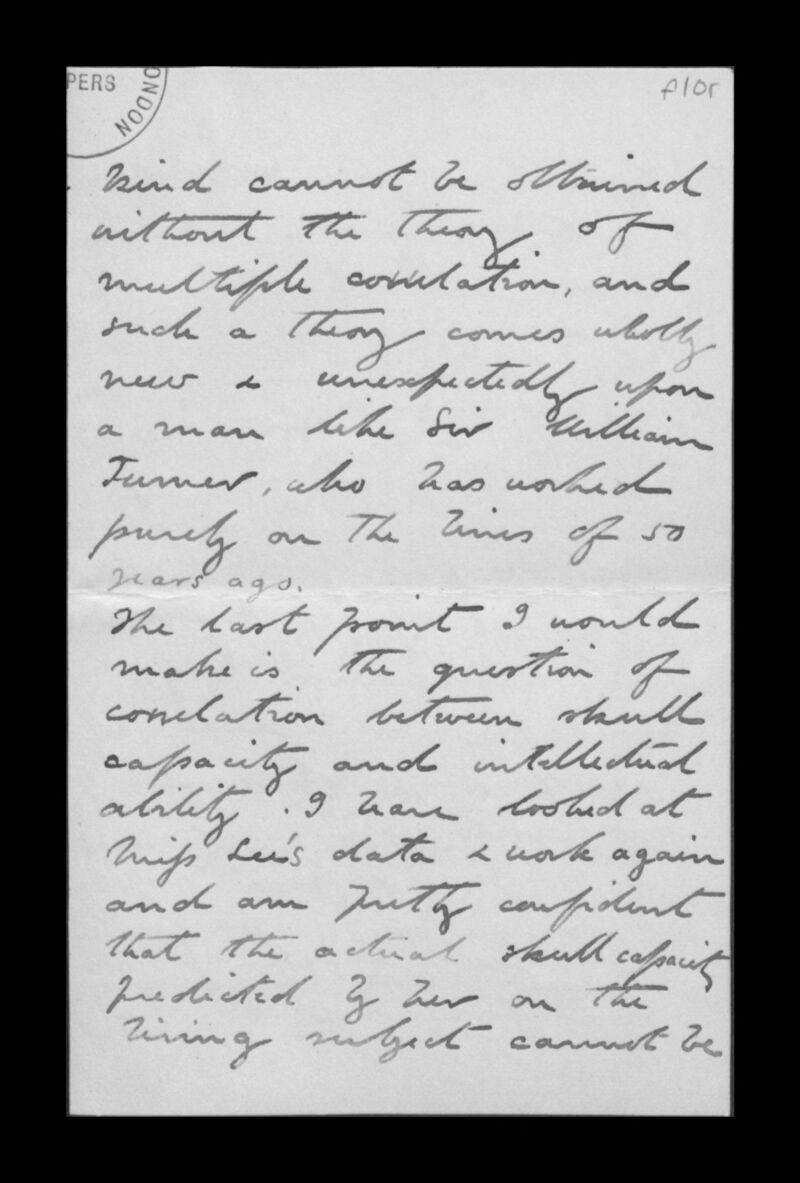 PERS
ONDON
f10r
kind cannot be obtained
without the theory of
multiple correlation, and
such a theory comes wholly
new & unexpectedly upon
a man like Sir William
Turner, who has worked
purely on the lines of 50
years ago.
The last point I would
make is the question of
correlation between skull
capacity and intellectual
ability. I have looked at
Miss Lee's data & work again
and am pretty confident
that the actual skull capacity
predicted by her on the
living subject cannot be